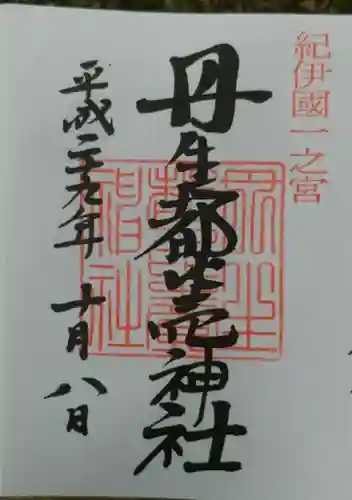 紀伊國一之宮
丹生都比売神社
平成二十九年 十月八日